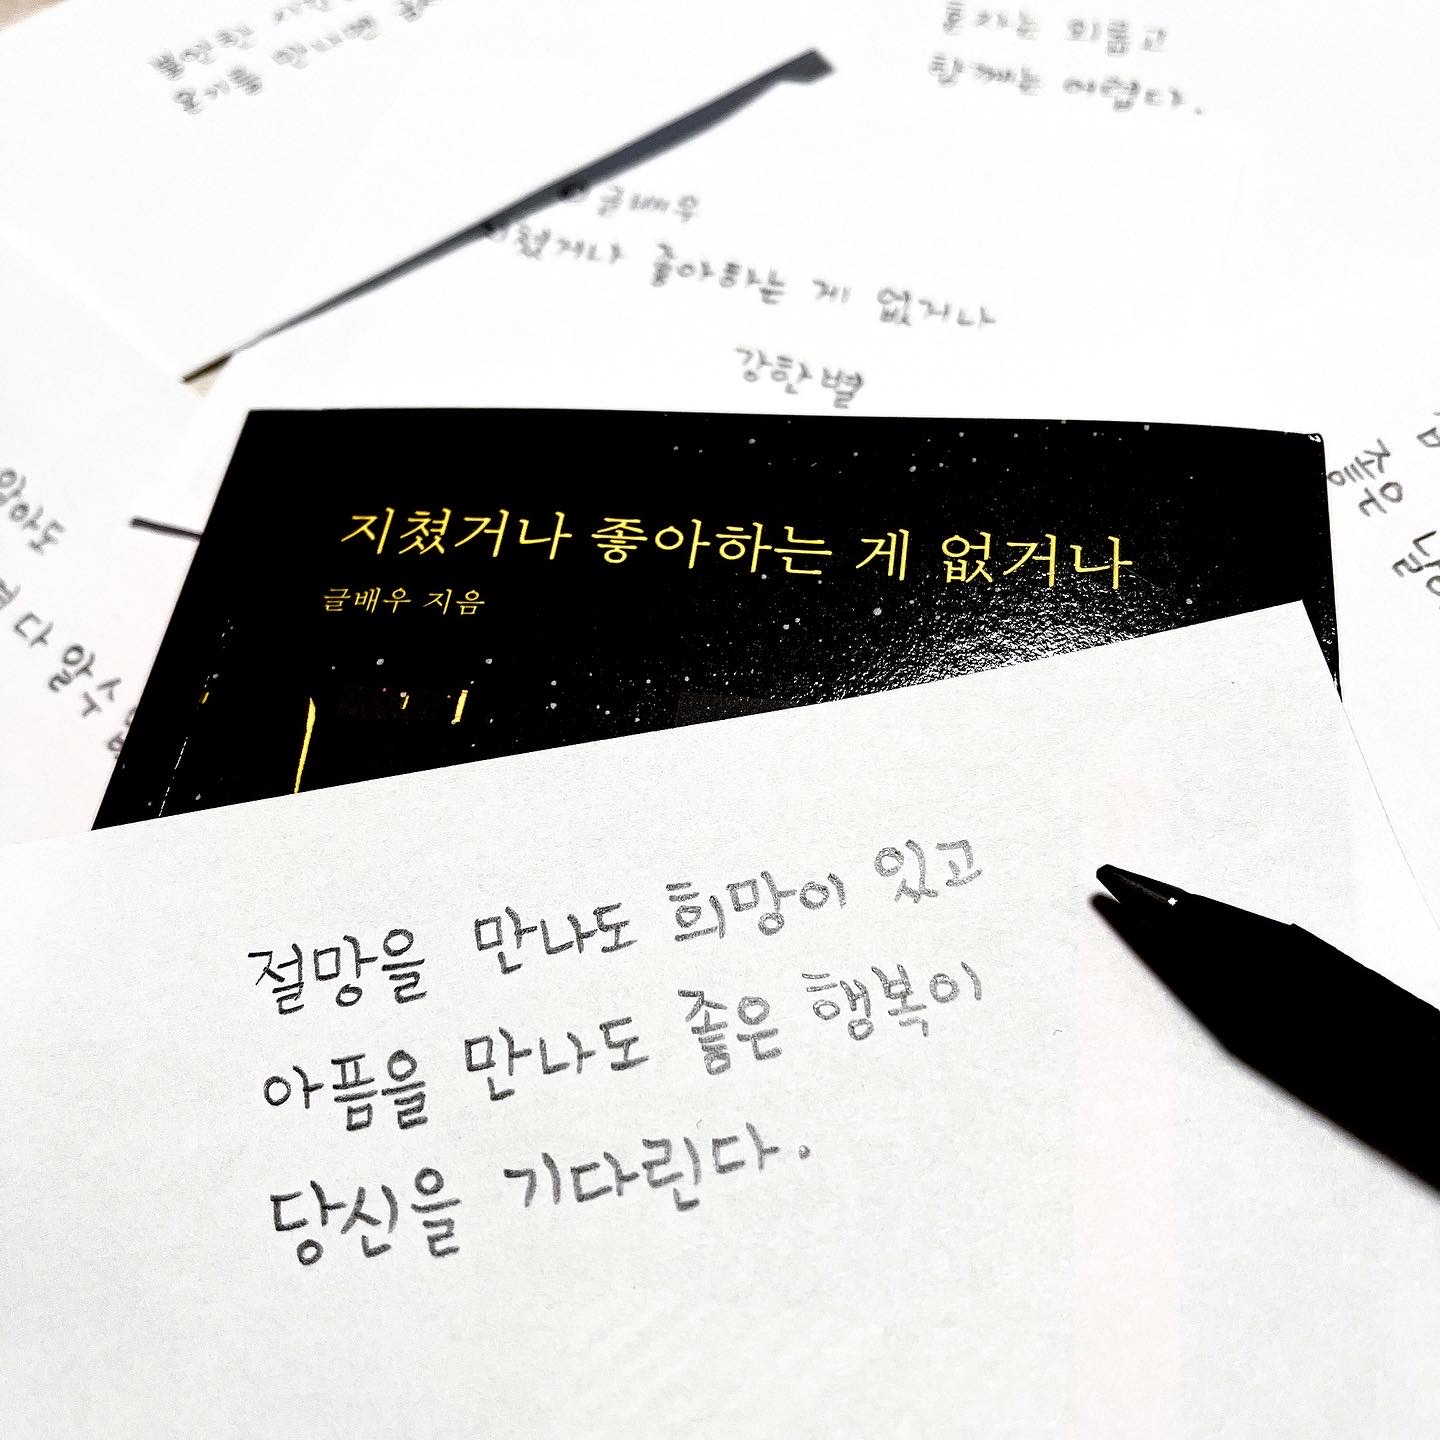 혼자는 외롭고
함께는 어렵다.
글배우
쳤거나 좋아하는 게 없거나
강한별
지쳤거나 좋아하는 게 없거나
글배우 지음
않아도
다 알 수
좋은
절망을 만나도 희망이 있고
아픔을 만나도 좋은 행복이
당신을 기다린다.